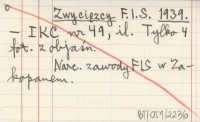 Zwycięzcy F.I.S. 1939.
— IKC nr 49, il. Tylko 4
fot. z objaśn.
Narc. zawody FIS w Za-
kopanem.
BJ/054/2236